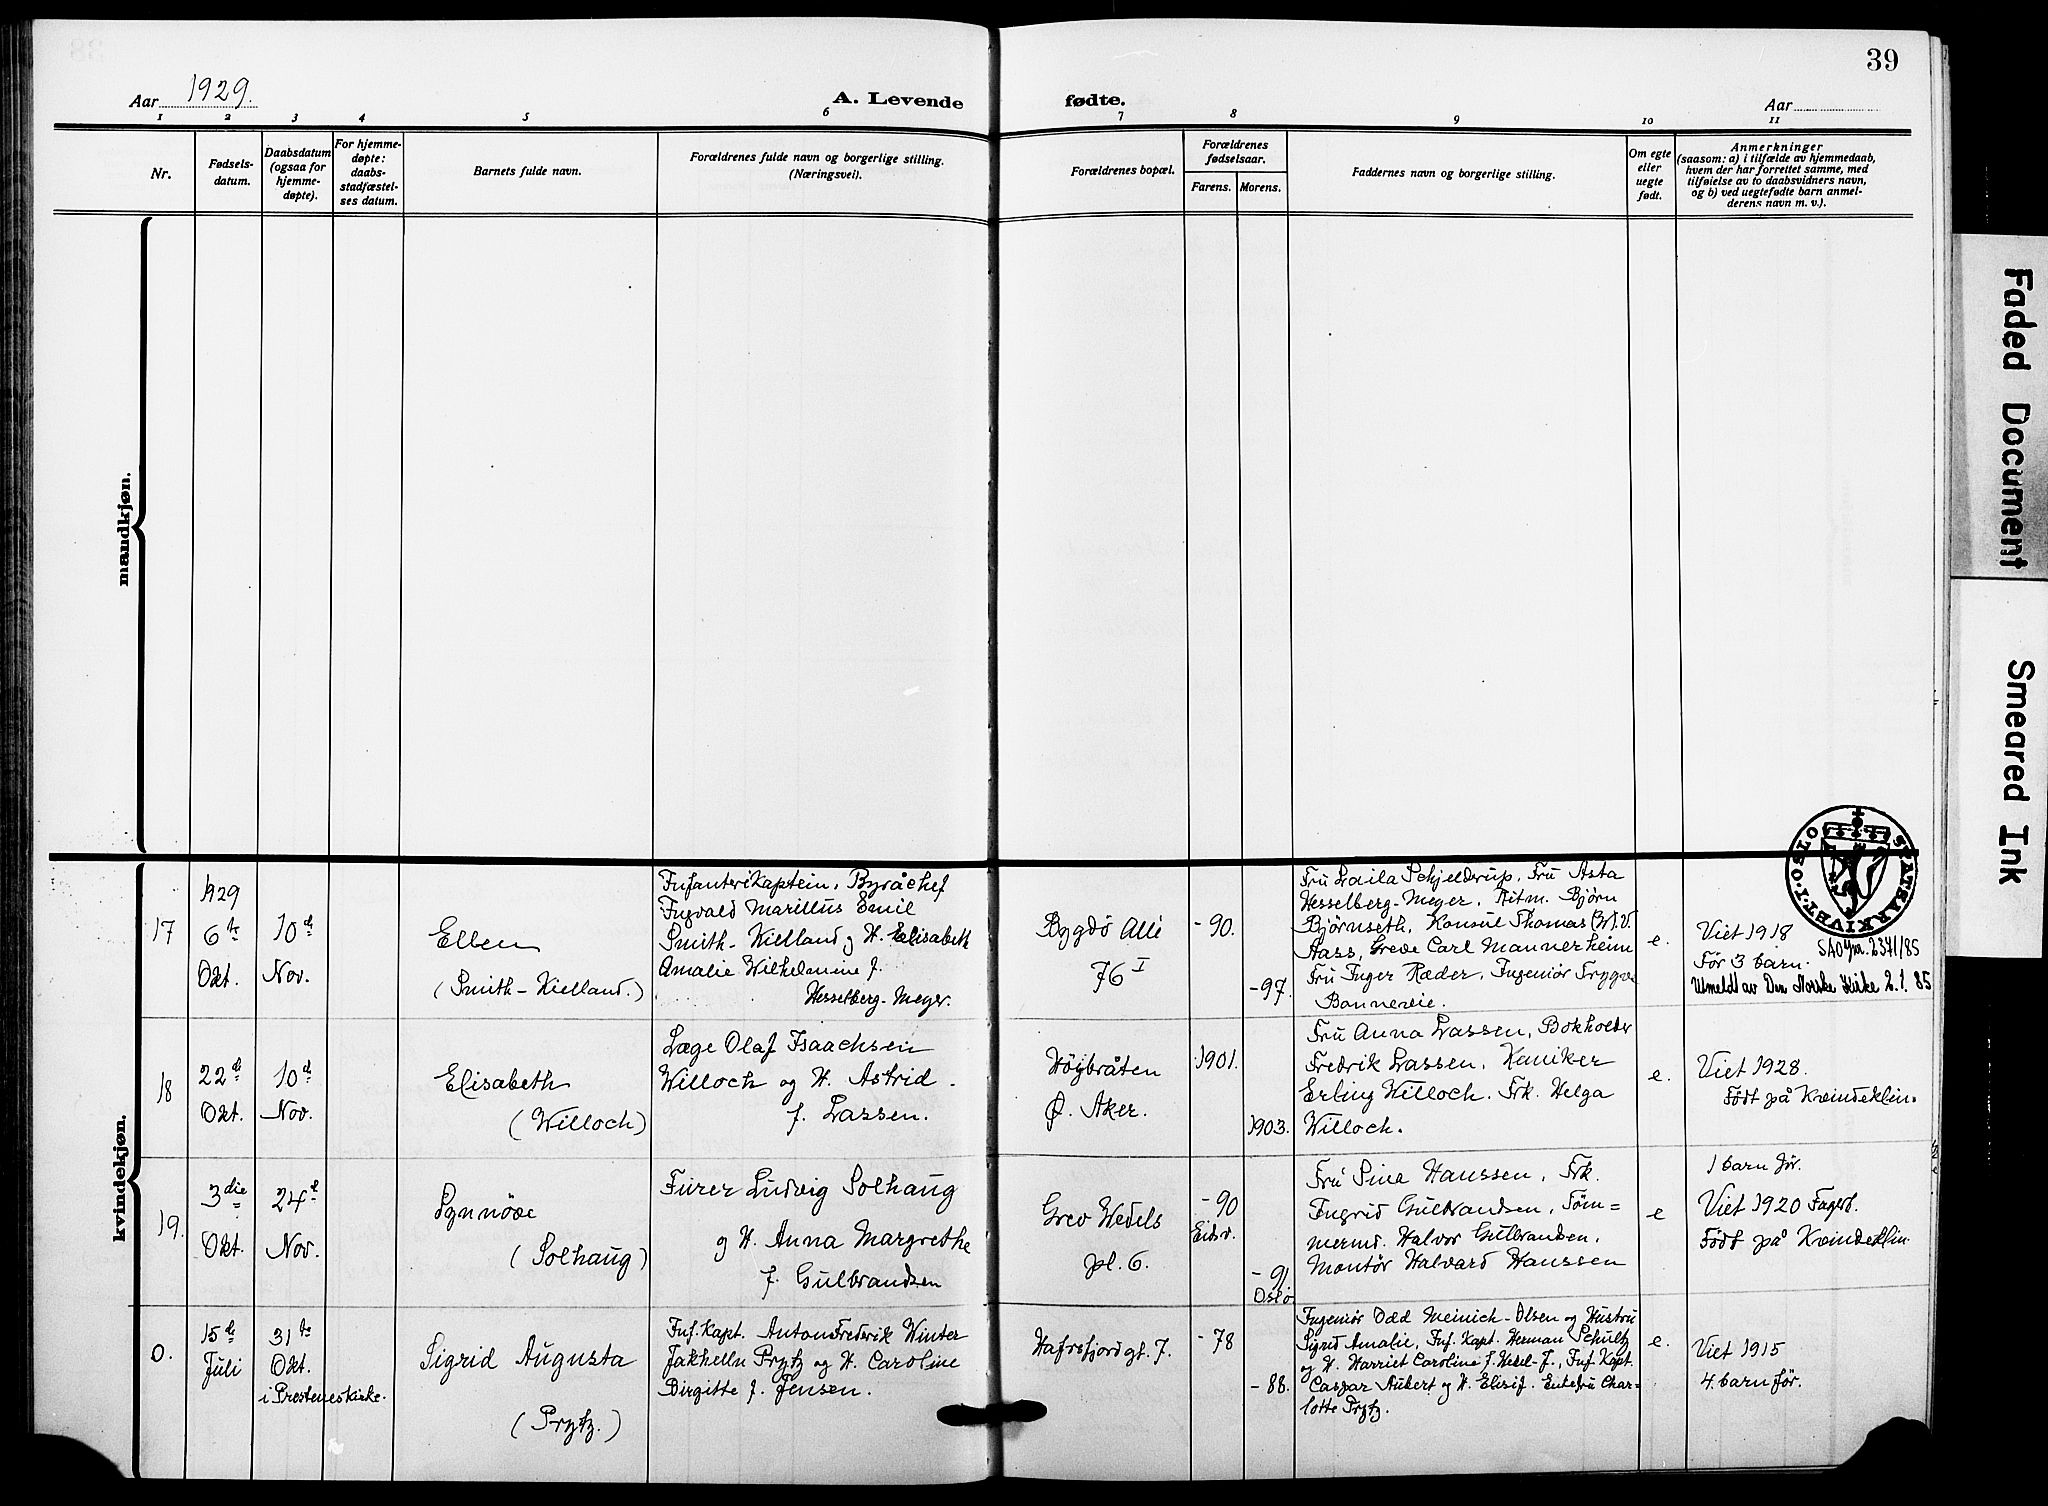 39
Aar 1929.
A. Levende
fødte.
Aar
1
2
3
4
5
6
7
8
9
10
11
Nr.
Fødsels-
datum.
Daabsdatum
(ogsaa for
hjemme-
døpte).
For hjemme-
døpte:
daabs-
stadfæstel-
ses datum.
Barnets fulde navn.
Forældrenes fulde navn og borgerlige stilling.
(Næringsvei).
Forældrenes bopæl.
Forældrenes
fødselsaar.
Farens.
Morens.
Faddernes navn og borgerlige stilling.
Om egte
eller
uegte
født.
Anmerkninger
(saasom: a) i tilfælde av hjemmedaab,
hvem der har forrettet samme, med
tilføielse av to daabsvidners navn,
og b) ved uegtefødte barn anmel-
derens navn m. v.).
mandkjøn.
kvindekjøn.
17
1929
6te
Okt.
10d
Nov.
Ellen
(Smith-Kielland.)
Infanterikaptein, Byråchef
Ingvald Marillus Emil
Smith-Kielland og H. Elisabeth
Amalie Wilhelmine f.
Hesselberg-Meyer.
Bygdø Allé
76 I
-90.
-97.
Fru Laila Schjelderup, Fru Asta
Hesselberg-Meyer, Ritm. Bjørn
Bjørnseth, Konsul Thomas
Aass, Greve Carl Mannerheim
Fru Inger Ræder, Ingeniør Trygve
e.
Viet 1918
Før 3 barn.
SAO Jnr. 2341/85
Utmeldt av Den Norske Kirke 2.1.85
STATSARKIVET·I·OSLO
18
22d
Okt.
10d
Nov.
Elisabeth
(Willoch)
Læge Olaf Isaachsen
Willoch og H. Astrid
f. Lassen.
Høybråten
Ø. Aker.
1901.
1903.
Fru Anna Lassen, Bokholder
Fredrik Lassen, Kemiker
Erling Willoch. Frk. Helga
Willoch.
e.
Viet 1928.
Født på Kvindeklin.
19.
3die
Okt.
24d
Nov.
Synnöve
(Solhaug)
Furer Ludvig Solhaug
og H. Anna Margrethe
f. Gulbrandsen
Grev Wedels
pl. 6.
-90
Eidsv.
-91
Oslo
Fru Sina Hanssen, Frk.
Ingrid Gulbrandsen, Tøm=
mermd. Halvor Gulbrandsen,
Montør Halvard Hanssen
e
1 barn før.
Viet 1920
Født på Kvindeklin
0.
15d
Juli
31te
Okt.
i Prestenes kirke.
Sigrid Augusta
(Prytz.)
Inf. Kapt. Anton Frederik Winter
Jakhelln Prytz og H. Caroline
Birgitte f. Jensen.
Hafrsfjordgt. 7.
-78
-88.
Ingeniør Odd Meinich-Olsen og Hustru
Sigrid Amalie, Inf. Kapt. Herman Schultz
og H. Harriet Caroline f. Wesel-J., Inf. Kapt.
Caspar Aubert og H. Elisif. Enkefru Char-
lotte Prytz.
e.
Viet 1915
4 barn før.
Faded Document
Smeared Ink